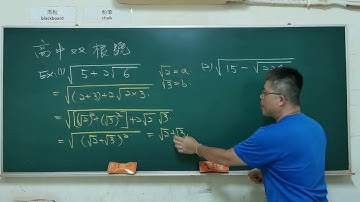 黑板
blackboard
粉筆
chalk
高中双根號
Ex:(1) √(5+2√6)
= √((2+3)+2√(2×3))
= √([(√2)²+(√3)²]+2√2√3)
= √((√2+√3)²) = √2+√3
√2=a
√3=b
(2) √(15-√